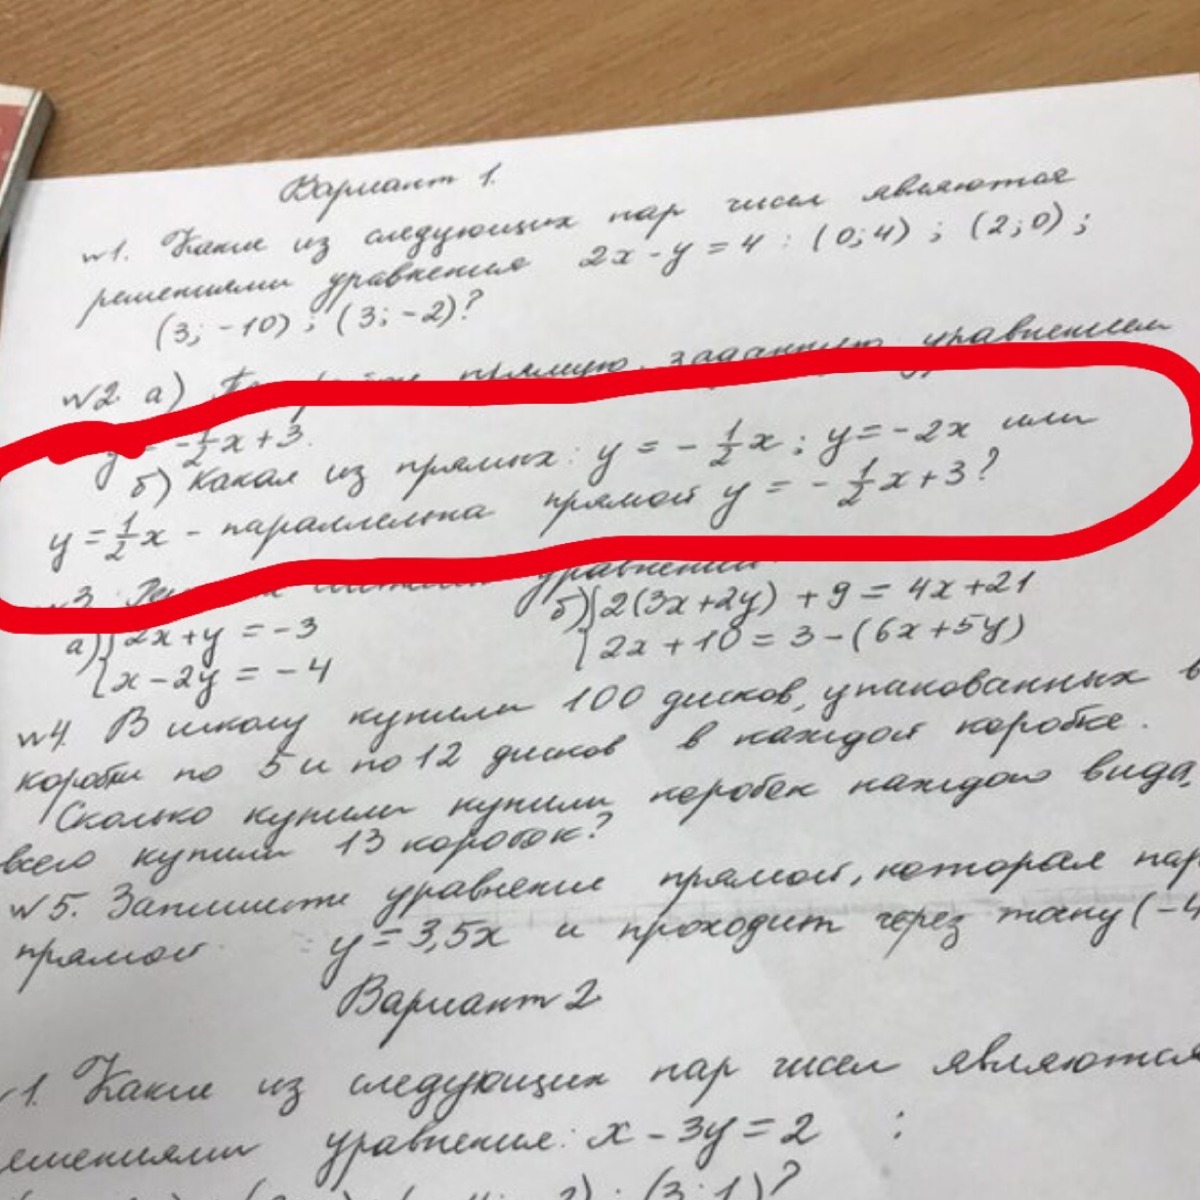 Вариант 1.
№1. Какие из следующих пар чисел являются
решениями уравнения 2x - y = 4 : (0;4) ; (2;0) ;
(3; -10) ; (3; -2)?
№2. а) прямую, заданную уравнением
y = -1/2x + 3.
б) Какая из прямых: y = - 1/2x ; y = -2x или
y = 1/2x - параллельна прямой y = - 1/2x + 3?
№3. уравнений
а) { 2x + y = -3
{ x - 2y = -4
б) { 2(3x + 2y) + 9 = 4x + 21
{ 2x + 10 = 3 - (6x + 5y)
№4. В школу купили 100 дисков, упакованных в
коробки по 5 и по 12 дисков в каждой коробке.
Сколько купили купили коробок каждого вида,
всего купили 13 коробок?
№5. Запишите уравнение прямой, которая пар
прямой y = 3,5x и проходит через точку (-4
Вариант 2
1. Какие из следующих пар чисел являются
ешениями уравнения: x - 3y = 2 :
(3;1)?